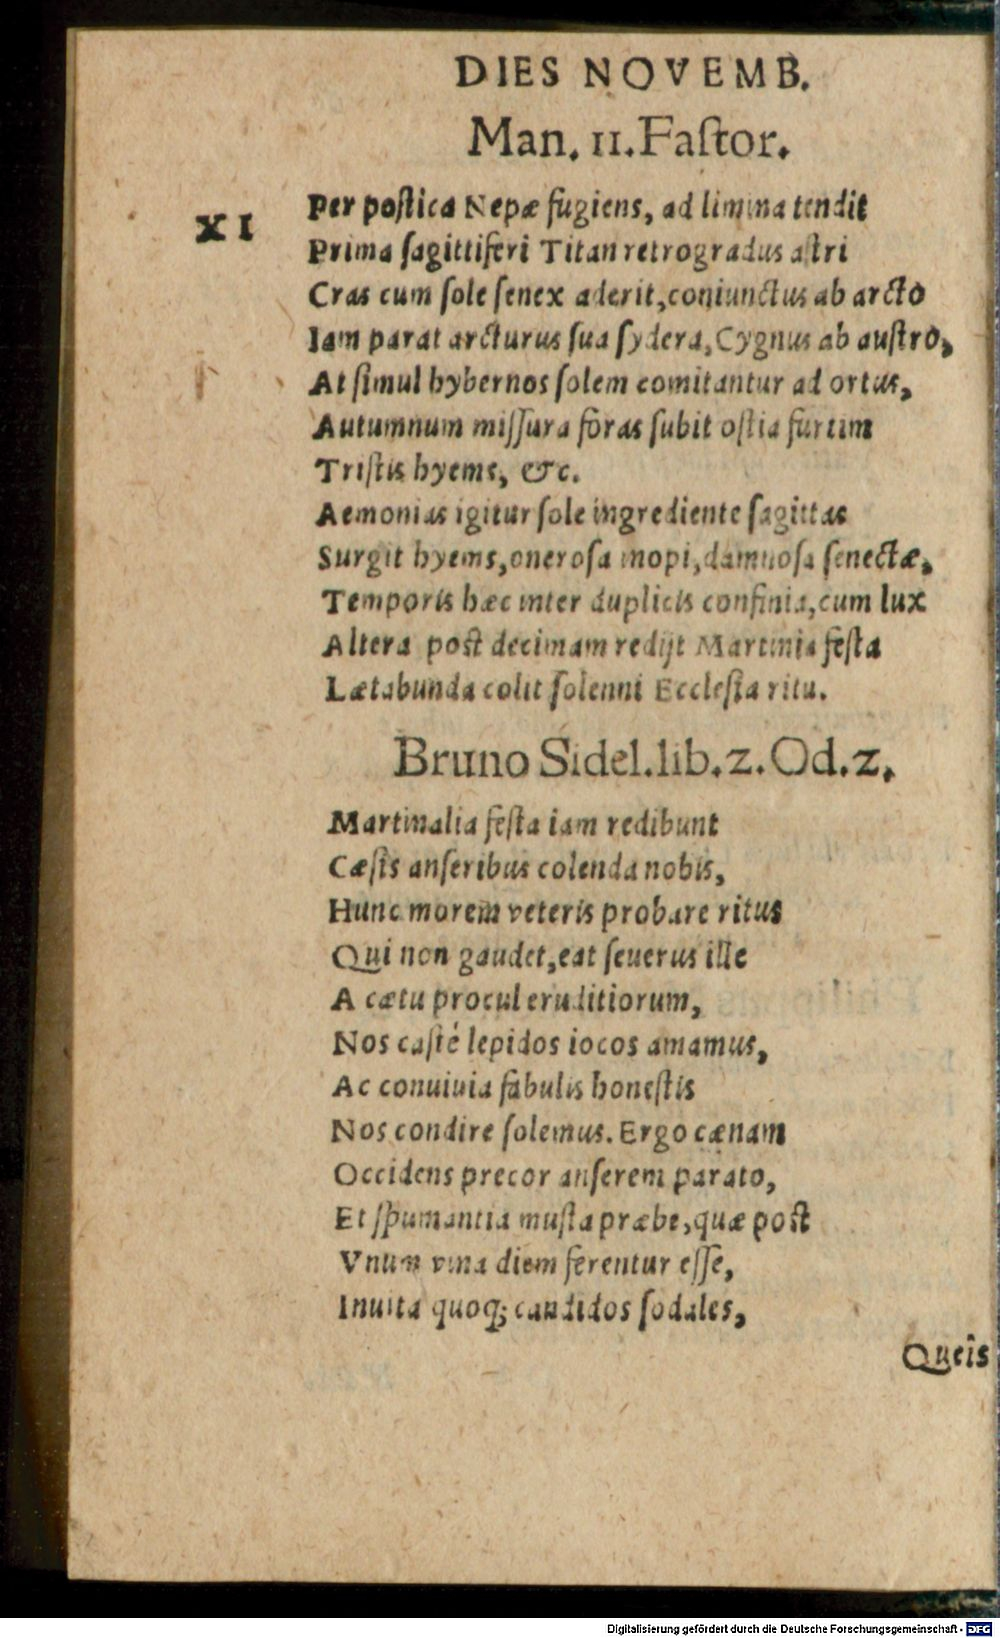 DIES NOVEMB.
Man. 11. Faſtor.
XI
Per poſtica Nepæ fugiens, ad limina tendit
Prima ſagittiferi Titan retrogradus aſtri
Cras cum ſole ſenex aderit, coniunctus ab arcto
Iam parat arcturus ſua ſydera, Cygnus ab auſtro,
At ſimul hybernos ſolem comitantur ad ortus,
Autumnum miſſura foras ſubit oſtia furtim
Triſtis hyems, &c.
Aemonias igitur ſole ingrediente ſagittas
Surgit hyems, oneroſa inopi, damnoſa ſenectæ,
Temporis hæc inter duplicis confinia, cum lux
Altera post decimam redijt Martinia feſta
Lætabunda colit ſolenni Eccleſia ritu.
Bruno Sidel. lib. 2. Od. 2.
Martinalia feſta iam redibunt
Cæſis anſeribus colenda nobis,
Hunc morem veteris probare ritus
Qui non gaudet, eat ſeuerus ille
A cætu procul eruditiorum,
Nos caſté lepidos iocos amamus,
Ac conuiuia fabulis honeſtis
Nos condire ſolemus. Ergo cænam
Occidens precor anſerem parato,
Et ſpumantia muſta præbe, quæ poſt
Vnum vina diem ferentur eſſe,
Inuita quoq; candidos ſodales,
Queis
Digitalisierung gefördert durch die Deutsche Forschungsgemeinschaft - DFG